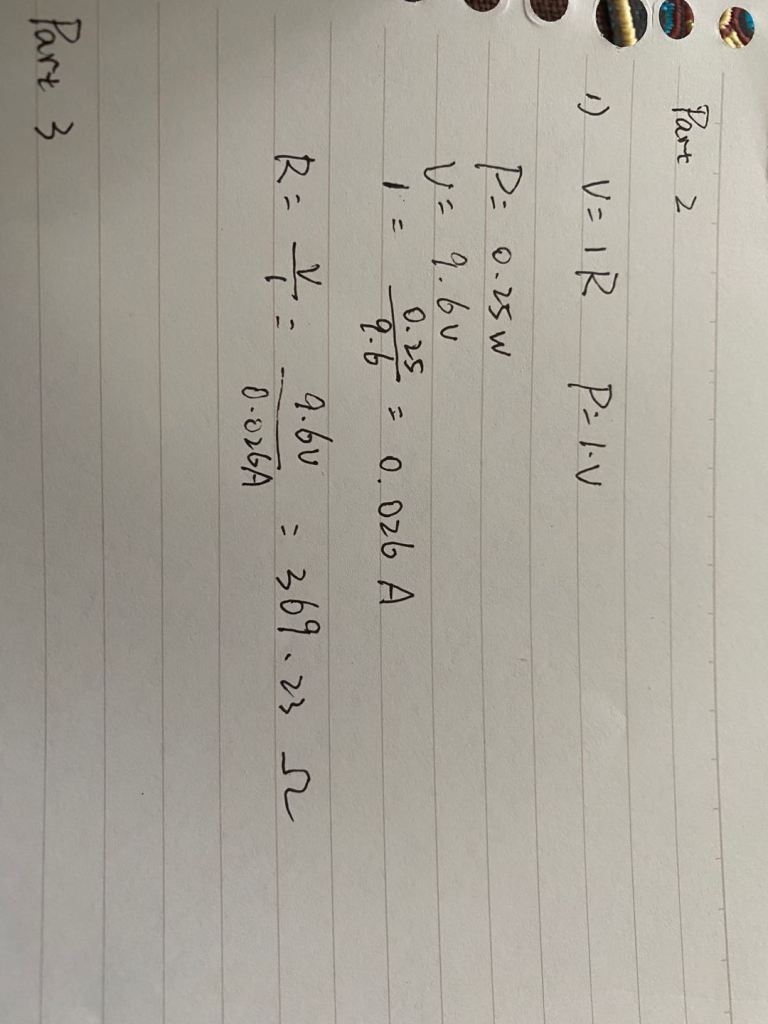 Part 2
1) V = I R P = I·V
P = 0.25 W
V = 9.6 V
I = 0.25 / 9.6 = 0.026 A
R = V / I = 9.6V / 0.026A = 369.23 Ω
Part 3